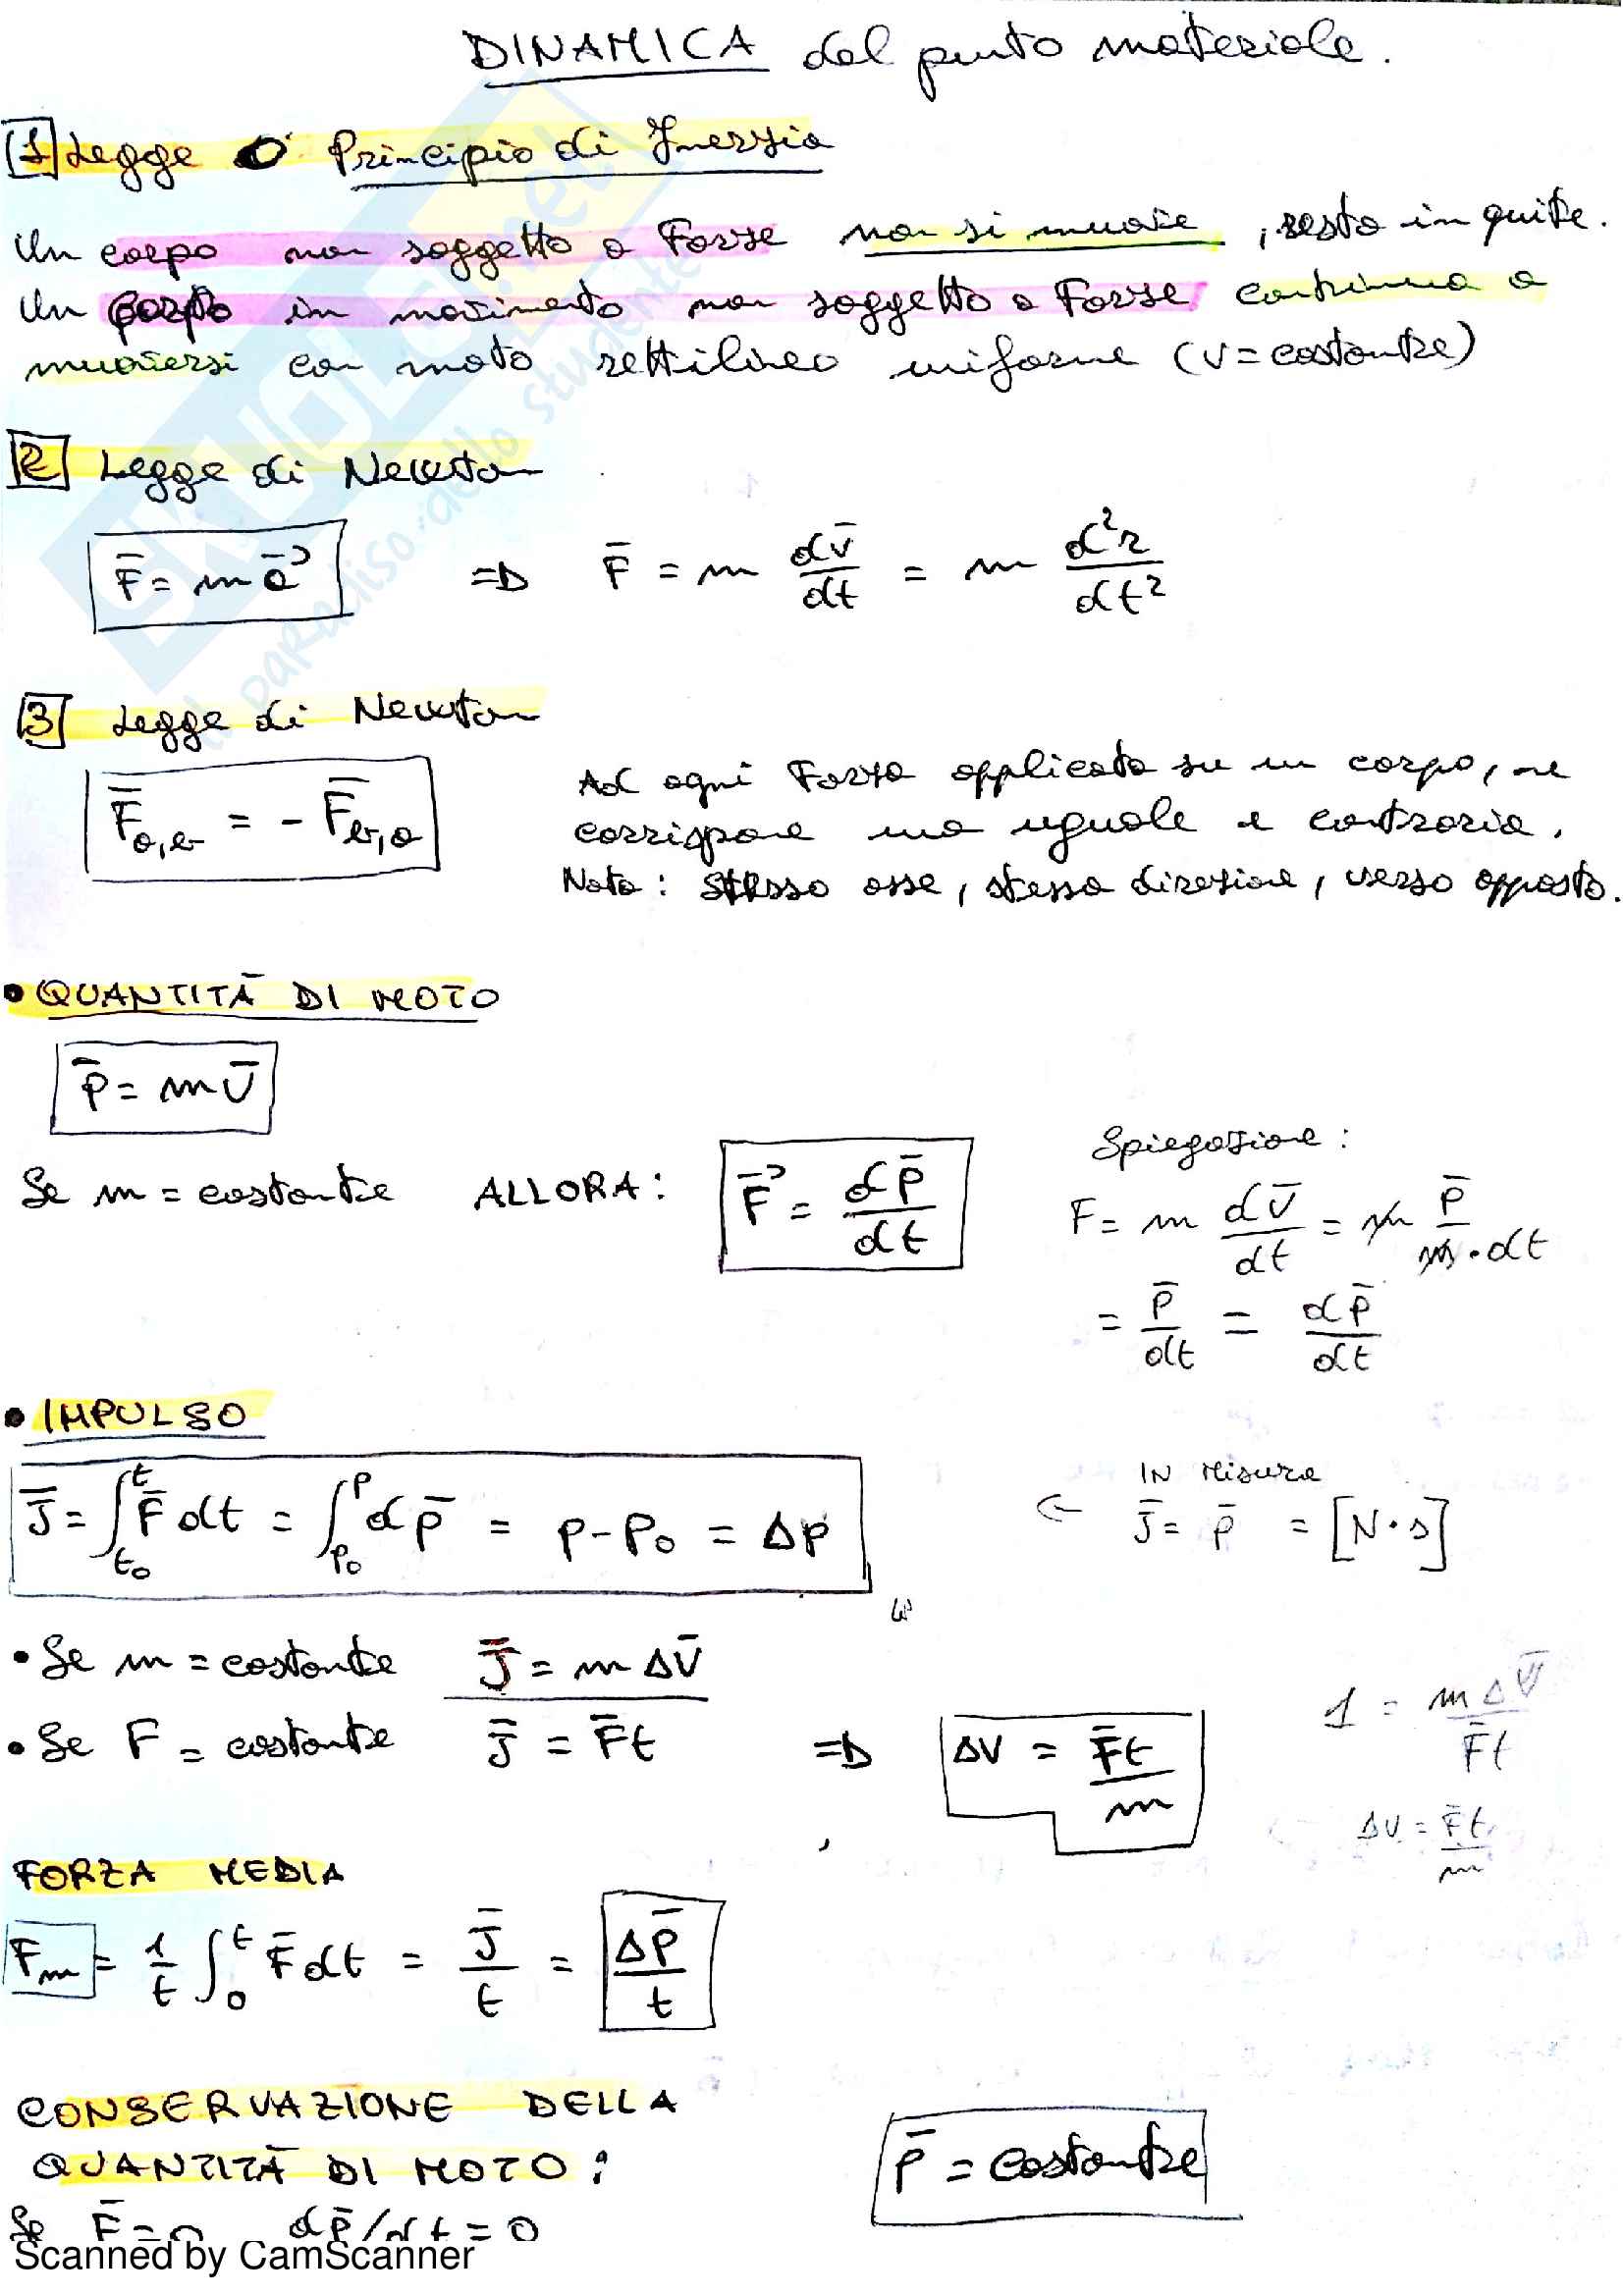 DINAMICA del punto materiale.
1 Legge O Principio di Inerzia
Un corpo non soggetto a Forze non si muove, resta in quite.
Un corpo in movimento non soggetto a Forze continua a
muoversi con moto rettilineo uniforme (v = costante)
2 Legge di Newton
F̅ = m a̅ => F̅ = m dv̅/dt = m d²r/dt²
3 Legge di Newton
F̅a,b = - F̅b,a
Ad ogni Forza applicata su un corpo, ne
corrispone una uguale e contraria.
Nota: stesso asse, stessa direzione, verso opposto.
• QUANTITÀ DI MOTO
p̅ = m v̅
Se m = costante ALLORA: F̅ = dp̅/dt
Spiegazione:
F = m dv̅/dt = m p̅/m·dt
= p̅/dt = dp̅/dt
• IMPULSO
J̅ = ∫t₀^t F̅ dt = ∫p₀^p dp̅ = p-p₀ = Δp
IN Misura
J̅ = p̅ = [N·s]
• Se m = costante J̅ = m Δv̅
• Se F = costante J̅ = F̅t => ΔV = F̅t/m
1 = m Δv̅/F̅t
ΔV = F̅t/m
FORZA MEDIA
Fm = 1/t ∫0^t F̅ dt = J̅/t = Δp̅/t
CONSERVAZIONE DELLA
QUANTITÀ DI MOTO:
p̅ = costante
Se F̅ = 0 dp̅/dt = 0
Scanned by CamScanner
SKUOLA.net
il paradiso dello studente